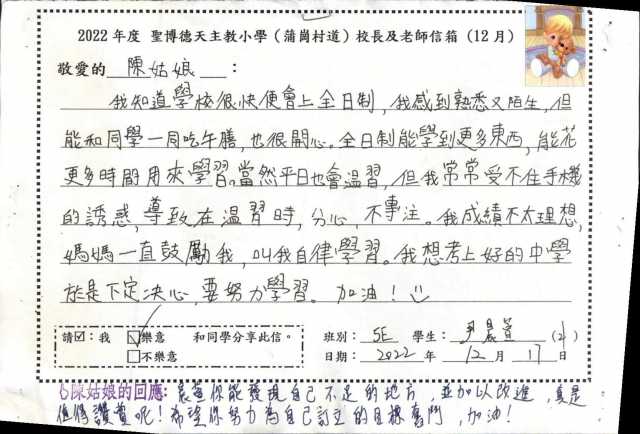 2022 年度 聖博德天主教小學（蒲崗村道）校長及老師信箱（12 月）
敬愛的 陳姑娘 ：
我知道學校很快便會上全日制，我感到熟悉又陌生，但
能和同學一同吃午膳，也很開心。全日制能學到更多東西，能花
更多時間用來學習。當然平日也會溫習，但我常常受不住手機
的誘惑，導致在溫習時，分心，不專注。我成績不太理想，
媽媽一直鼓勵我，叫我自律學習。我想考上好的中學
於是下定決心，要努力學習。加油！
請☑：我 ☑樂意 和同學分享此信。
□不樂意
班別： 5E 學生： 尹晨萱 (21)
日期： 2022 年 12 月 17 日
陳姑娘的回應：晨萱你能發現自己不足的地方，並加以改進，真是
值得讚賞呢！希望你努力為自己訂立的目標奮鬥，加油！